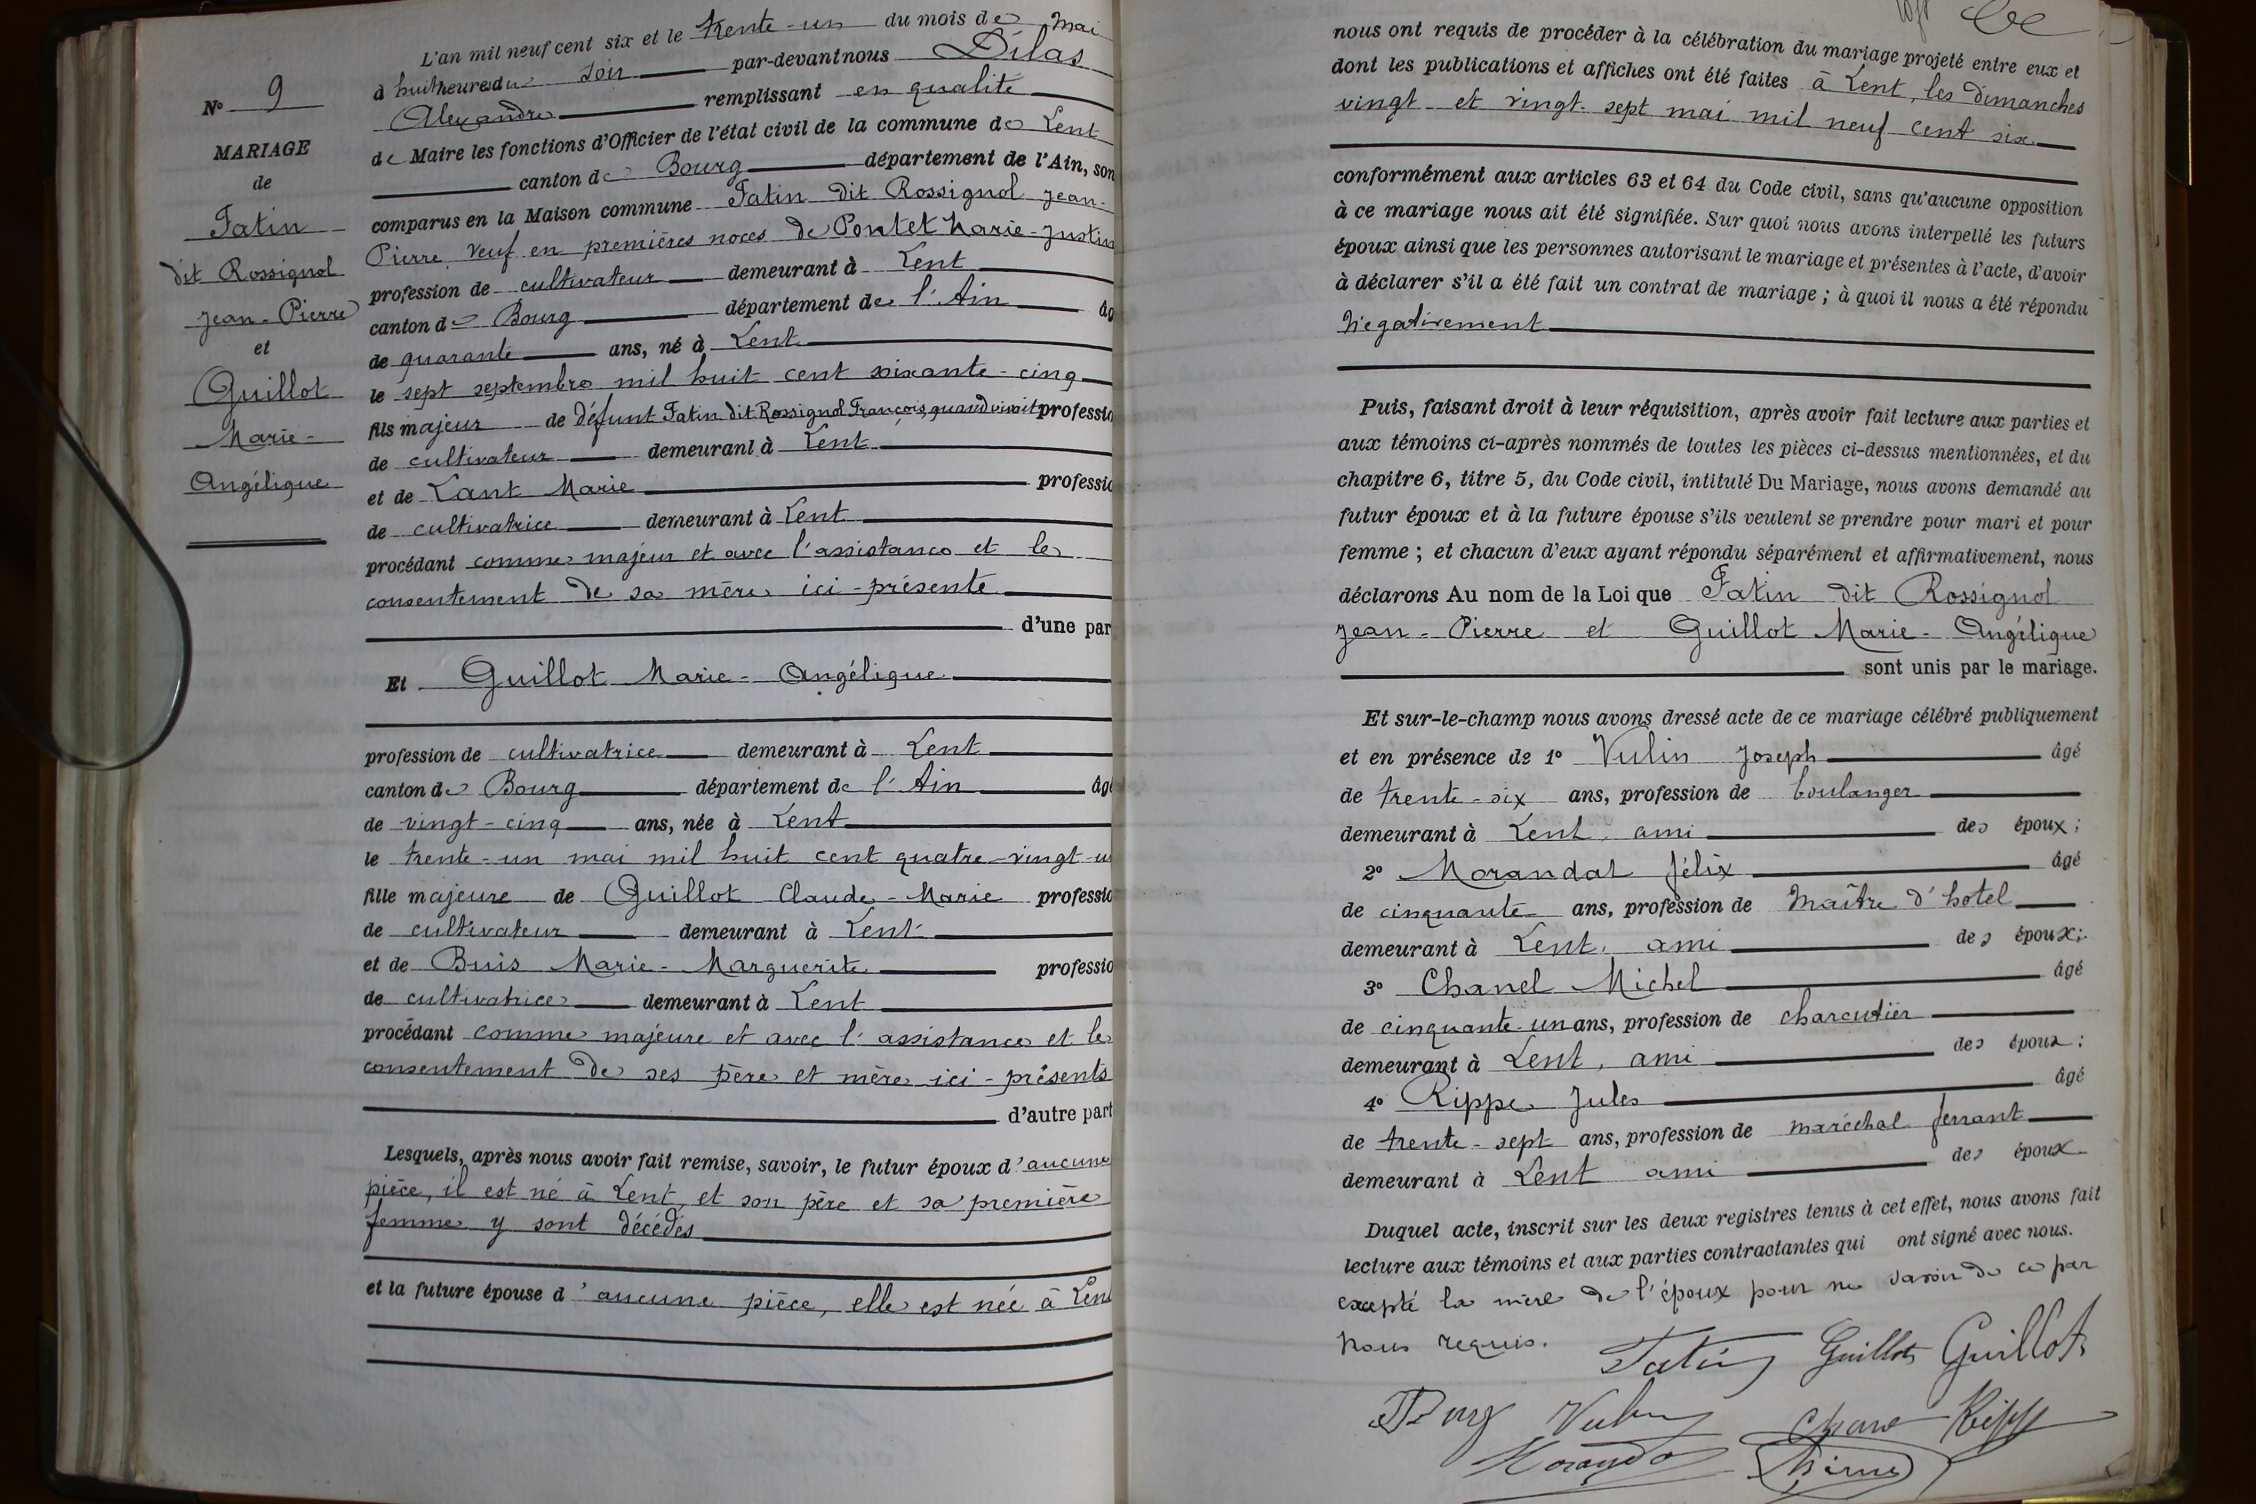 L'an mil neuf cent six et le trente-un du mois de Mai
à huit heures du soir par-devant nous Dilas
Alexandre remplissant en qualité
de Maire les fonctions d'Officier de l'état civil de la commune de Lent
canton de Bourg département de l'Ain, son
comparus en la Maison commune Tatin dit Rossignol Jean-
Pierre veuf en premières noces de Pontet Marie-Justin
profession de cultivateur demeurant à Lent
canton de Bourg département de l'Ain âg
de quarante ans, né à Lent
le sept septembre mil huit cent soixante-cinq
fils majeur de défunt Tatin dit Rossignol François, quand vivait professio
de cultivateur demeurant à Lent
et de Lant Marie professio
de cultivatrice demeurant à Lent
procédant comme majeur et avec l'assistance et le
consentement de sa mère ici-présente
d'une par
Et Guillot Marie-Angélique
profession de cultivatrice demeurant à Lent
canton de Bourg département de l'Ain âgé
de vingt-cinq ans, née à Lent
le trente-un mai mil huit cent quatre-vingt-u
fille majeure de Guillot Claude-Marie professio
de cultivateur demeurant à Lent
et de Buis Marie-Marguerite professio
de cultivatrice demeurant à Lent
procédant comme majeure et avec l'assistance et le
consentement de ses père et mère ici-présents
d'autre part
Lesquels, après nous avoir fait remise, savoir, le futur époux d'aucune
pièce, il est né à Lent et son père et sa première
femme y sont décédés
et la future épouse d'aucune pièce, elle est née à Len
N° 9
MARIAGE
de
Tatin
dit Rossignol
Jean-Pierre
et
Guillot
Marie-
Angélique
nous ont requis de procéder à la célébration du mariage projeté entre eux et
dont les publications et affiches ont été faites à Lent, les dimanches
vingt et vingt-sept mai mil neuf cent six
conformément aux articles 63 et 64 du Code civil, sans qu'aucune opposition
à ce mariage nous ait été signifiée. Sur quoi nous avons interpellé les futurs
époux ainsi que les personnes autorisant le mariage et présentes à l'acte, d'avoir
à déclarer s'il a été fait un contrat de mariage ; à quoi il nous a été répondu
Négativement
Puis, faisant droit à leur réquisition, après avoir fait lecture aux parties et
aux témoins ci-après nommés de toutes les pièces ci-dessus mentionnées, et du
chapitre 6, titre 5, du Code civil, intitulé Du Mariage, nous avons demandé au
futur époux et à la future épouse s'ils veulent se prendre pour mari et pour
femme ; et chacun d'eux ayant répondu séparément et affirmativement, nous
déclarons Au nom de la Loi que Tatin dit Rossignol
Jean-Pierre et Guillot Marie-Angélique
sont unis par le mariage.
Et sur-le-champ nous avons dressé acte de ce mariage célébré publiquement
et en présence de 1° Vulin Joseph âgé
de trente-six ans, profession de boulanger
demeurant à Lent, ami des époux ;
2° Morandat Félix âgé
de cinquante ans, profession de Maître d'hotel
demeurant à Lent, ami des époux ;
3° Chanel Michel âgé
de cinquante-un ans, profession de charcutier
demeurant à Lent, ami des époux ;
4° Rippe Jules âgé
de trente-sept ans, profession de maréchal ferrant
demeurant à Lent ami des époux
Duquel acte, inscrit sur les deux registres tenus à cet effet, nous avons fait
lecture aux témoins et aux parties contractantes qui ont signé avec nous.
excepté la mère de l'époux pour ne savoir de ce par
nous requis.
Tatin Guillot Guillot